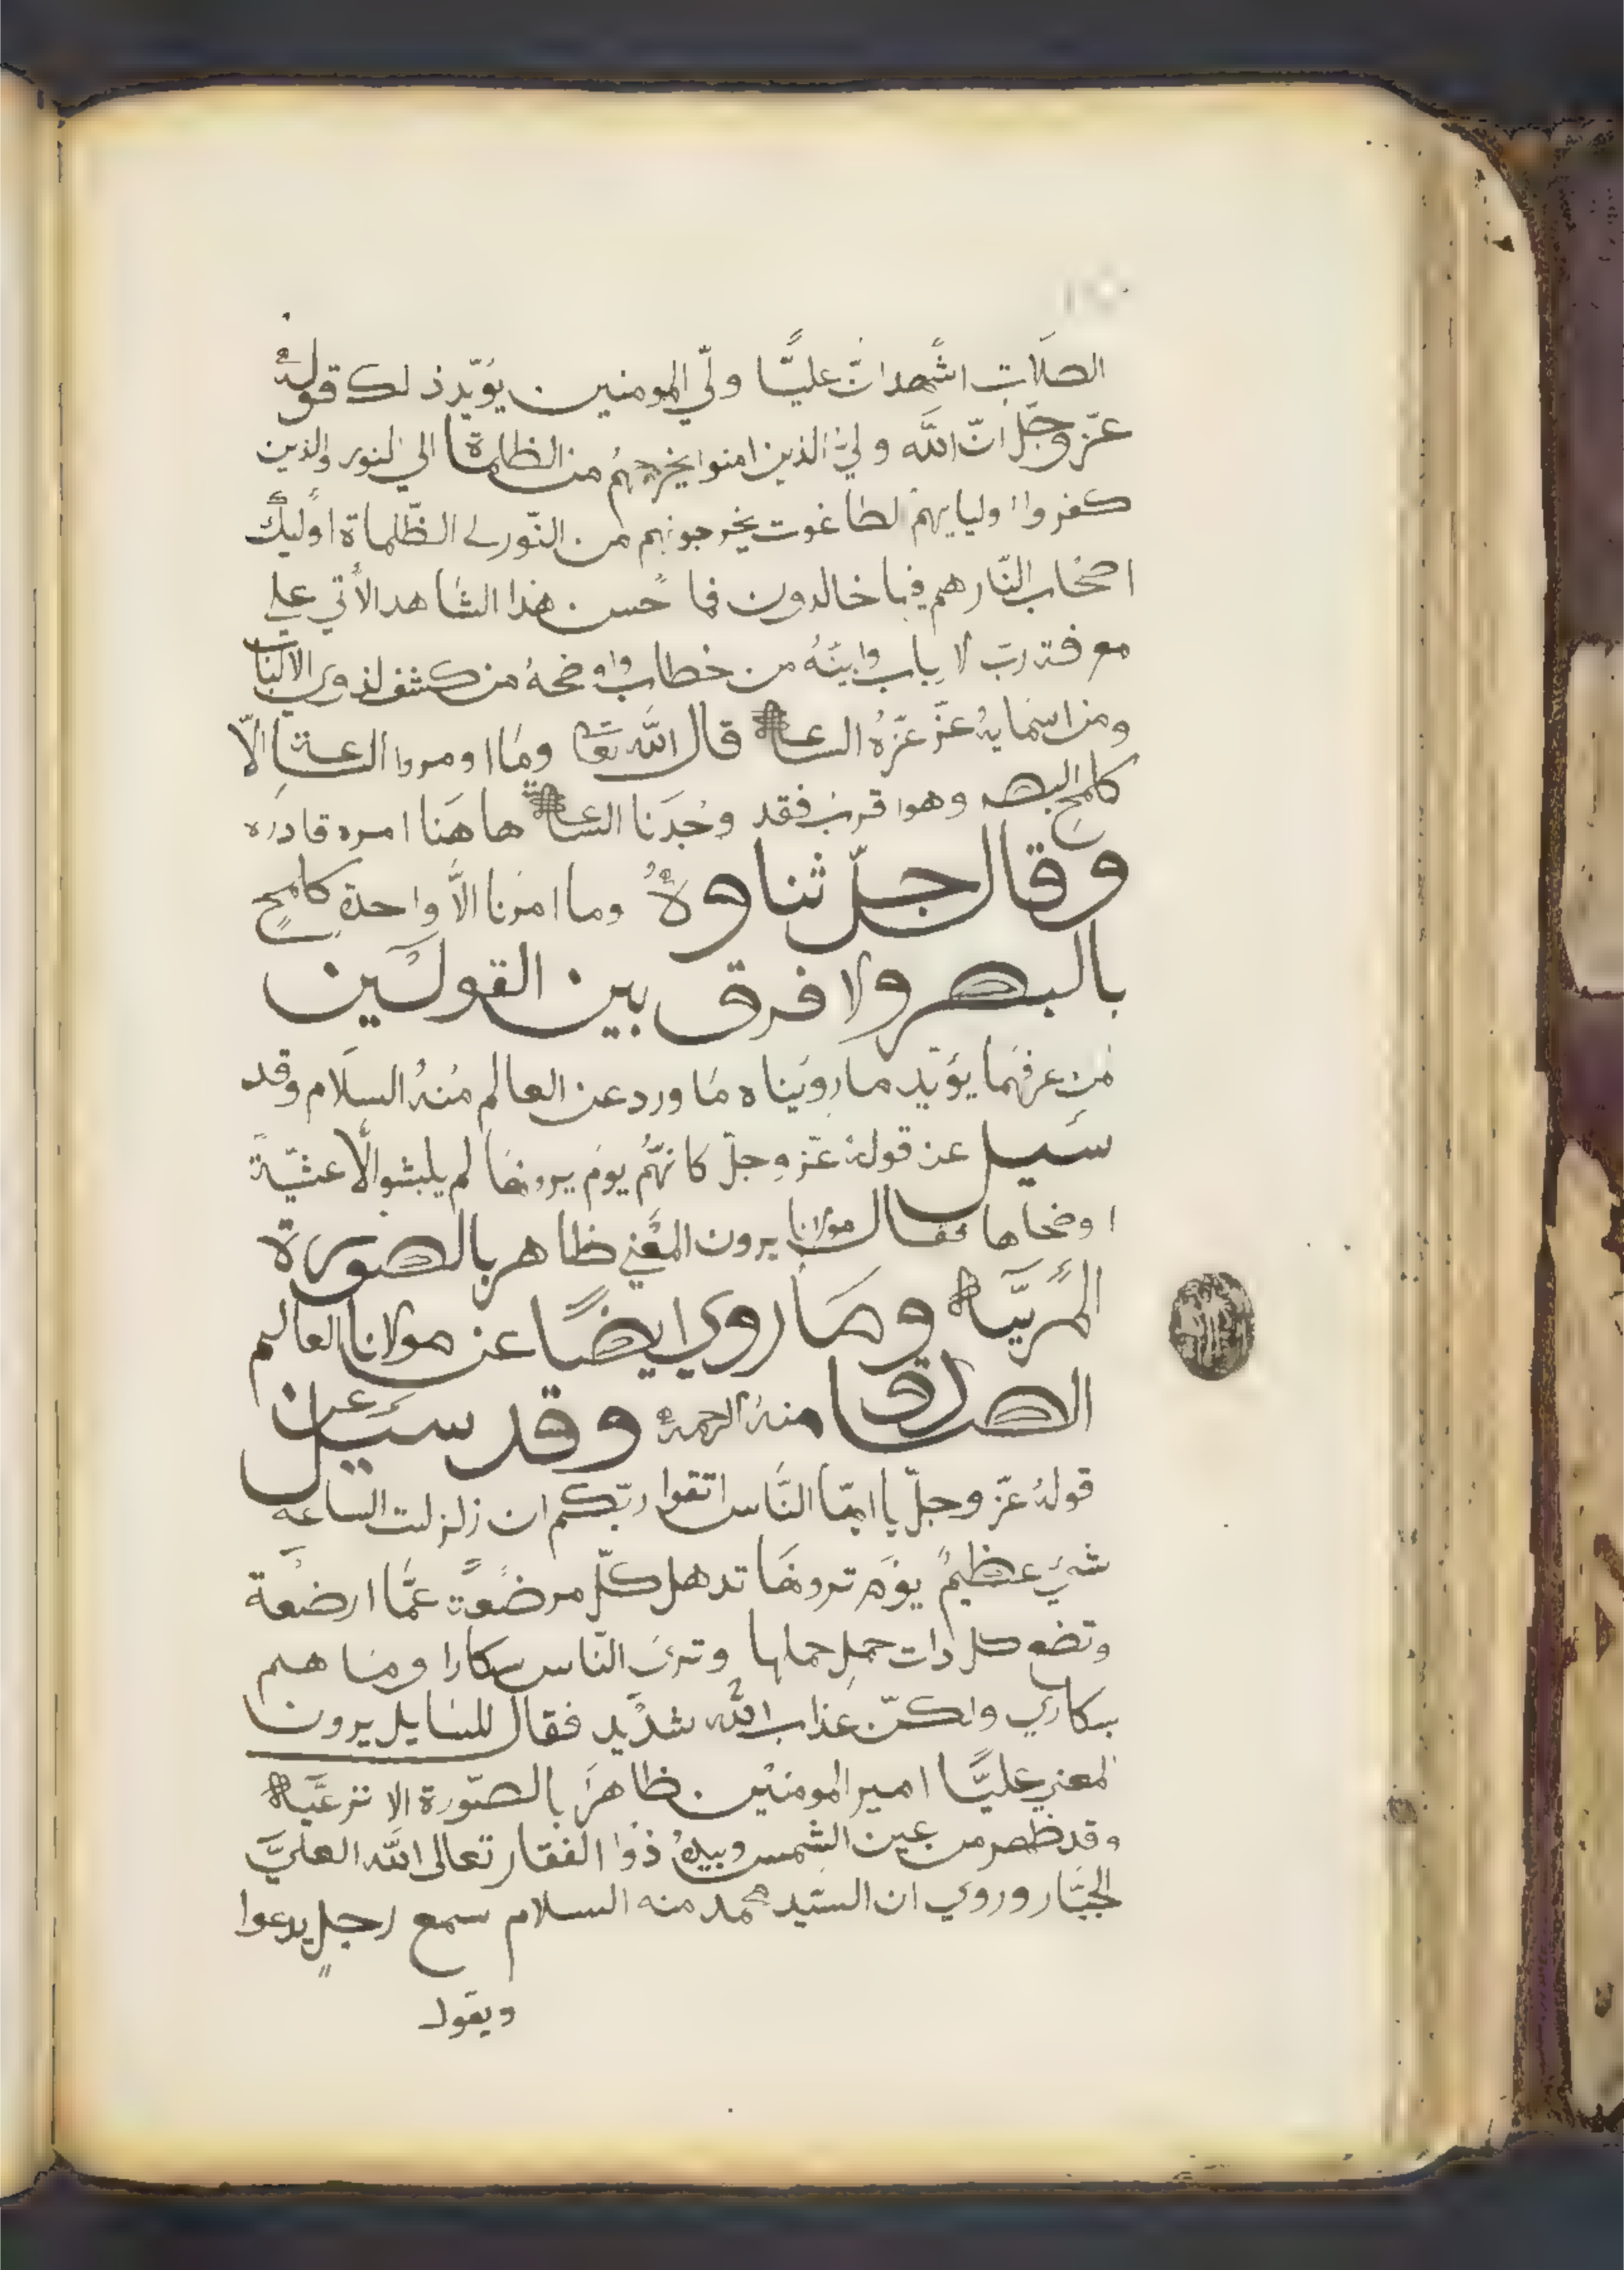 الصلات اشهد ان عليًّا ولّي المومنين يوّيد ذلك قوله
عزّ وجلّ انّ الله وليّ الذين امنوا يخرجهم من الظلماة الي النور والذين
كفروا اوليايهم لطاغوت يخرجونهم من النّور لى الظّلماة اوليك
اصحاب النّار هم فيها خالدون فما حسن هذا الشاهد الأتي علي
معرفة ربّ لا باب وابينهُ من خطاب واوضحهُ من كشف لذوي الالباب
ومن اسمايهُ عزّ عزّهُ الساعة قال الله تعا وما اومروا الساعة الّا
كلمح البصر وهوا قرب فقد وجدنا الساعة هاهنا امره قادره
وقال جلّ ثناوهُ وما امرنا الّا واحدة كلمحٍ
بالبصر ولا فرق بين القولين
من عرفهما يؤيّد ما رويناه ما ورد عن العالم منهُ السلام وقد
سيل عن قولهُ عزّ وجلّ كانهّم يوم يرونها لم يلبثوا الّا عشيّةً
اوضحاها فقال مولانا يرون المعني ظاهر بالصورة
المريّة وما روي ايضًا عن مولانا العالم
الصادق منهُ الرحمة وقد سيل عن
قولهُ عزّ وجلّ يا ايهّا النّاس اتقوا ربّكم ان زلزلت الساعه
شيء عظيم يوم ترونها تدهل كلّ مرضعةً عمّا ارضعة
وتضع كل دات حملٍ حملها وترى النّاس سكارا وما هم
بسكاري ولكنّ عذاب الله شديد فقال للسايل يرون
المعني عليًّا امير المومنين ظاهرَ بالصّورة الانزعيّة
وقد ظهر من عين الشمس وبيدهُ ذوا الفقار تعالى الله العليّ
الجبّار وروي ان السيّد محمد منه السلام سمع رجلٍ يدعوا
ويقول